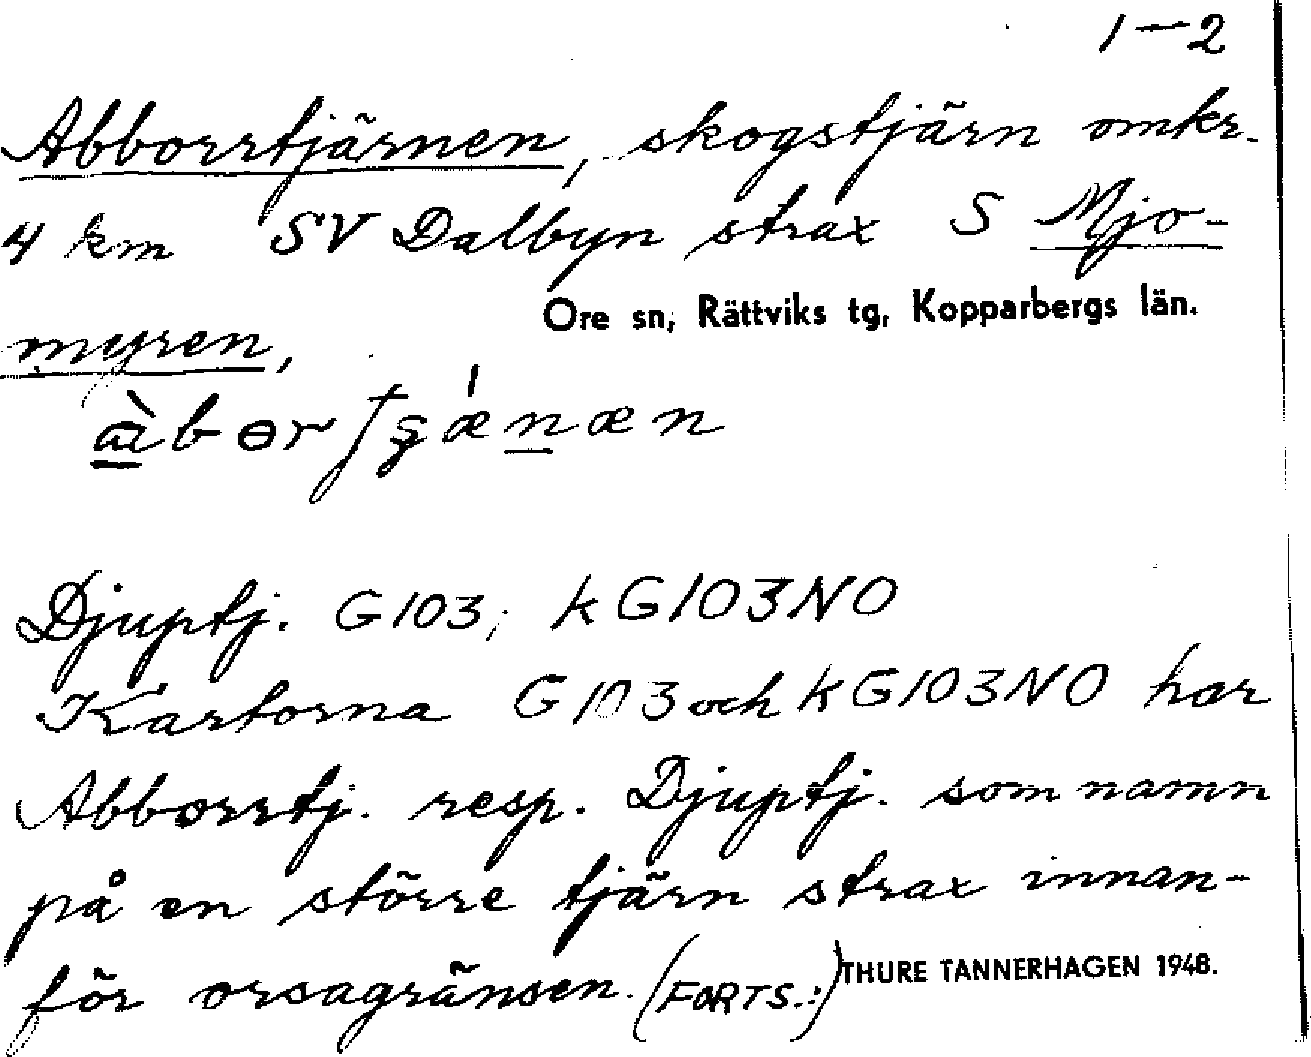 1-2
Abborrtjärnen, skogstjärn omkr.
4 km SV Dalbyn strax S Mjo-
Ore sn, Rättviks tg, Kopparbergs län.
myren,
Djuptj. G103; kG103NO
Kartorna G103 och kG103NO har
Abborrtj. resp. Djuptj. som namn
på en större tjärn strax innan-
för orsagränsen. (FORTS.:)
THURE TANNERHAGEN 1948.